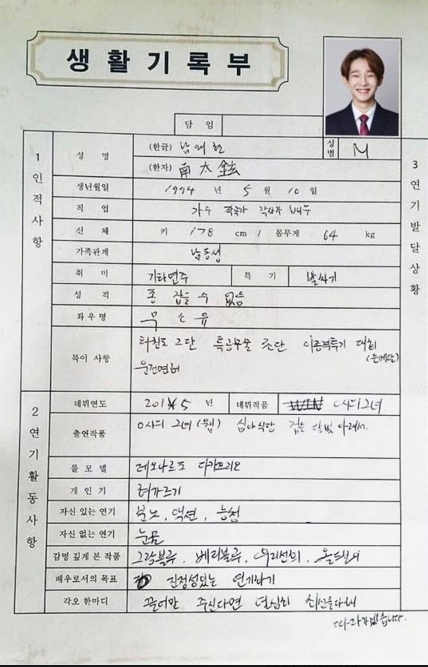 생활기록부
담 임
1 인적사항
성 명 (한글) 남태현 성별 M
(한자) 南太鉉
생년월일 1994 년 5 월 10 일
직 업 가수 작곡가 작사가 배우
신 체 키 178 cm / 몸무게 64 kg
가족관계 남동생
취 미 기타연주 특 기 발차기
성 격 종 잡을 수 없음
좌우명 무소유
특이 사항 태권도 2단 특공무술 초단 이종격투기 대회
(은메달)
운전면허
3 연기발달상황
2 연기활동사항
데뷔연도 2015 년 데뷔작품 0시의 그녀
출연작품 0시의 그녀 (웹) 심야식당 검은 달빛 아래서.
롤 모델 레오나르도 디카프리오
개 인 기 혀가르기
자신 있는 연기 분노, 액션, 능청
자신 없는 연기 눈물
감명 깊게 본 작품 그랑블루, 베티블루,
배우로서의 목표 진정성있는 연기하기
각오 한마디 끌어만 주신다면 열심히 최선을다해
따라가겠습니다.